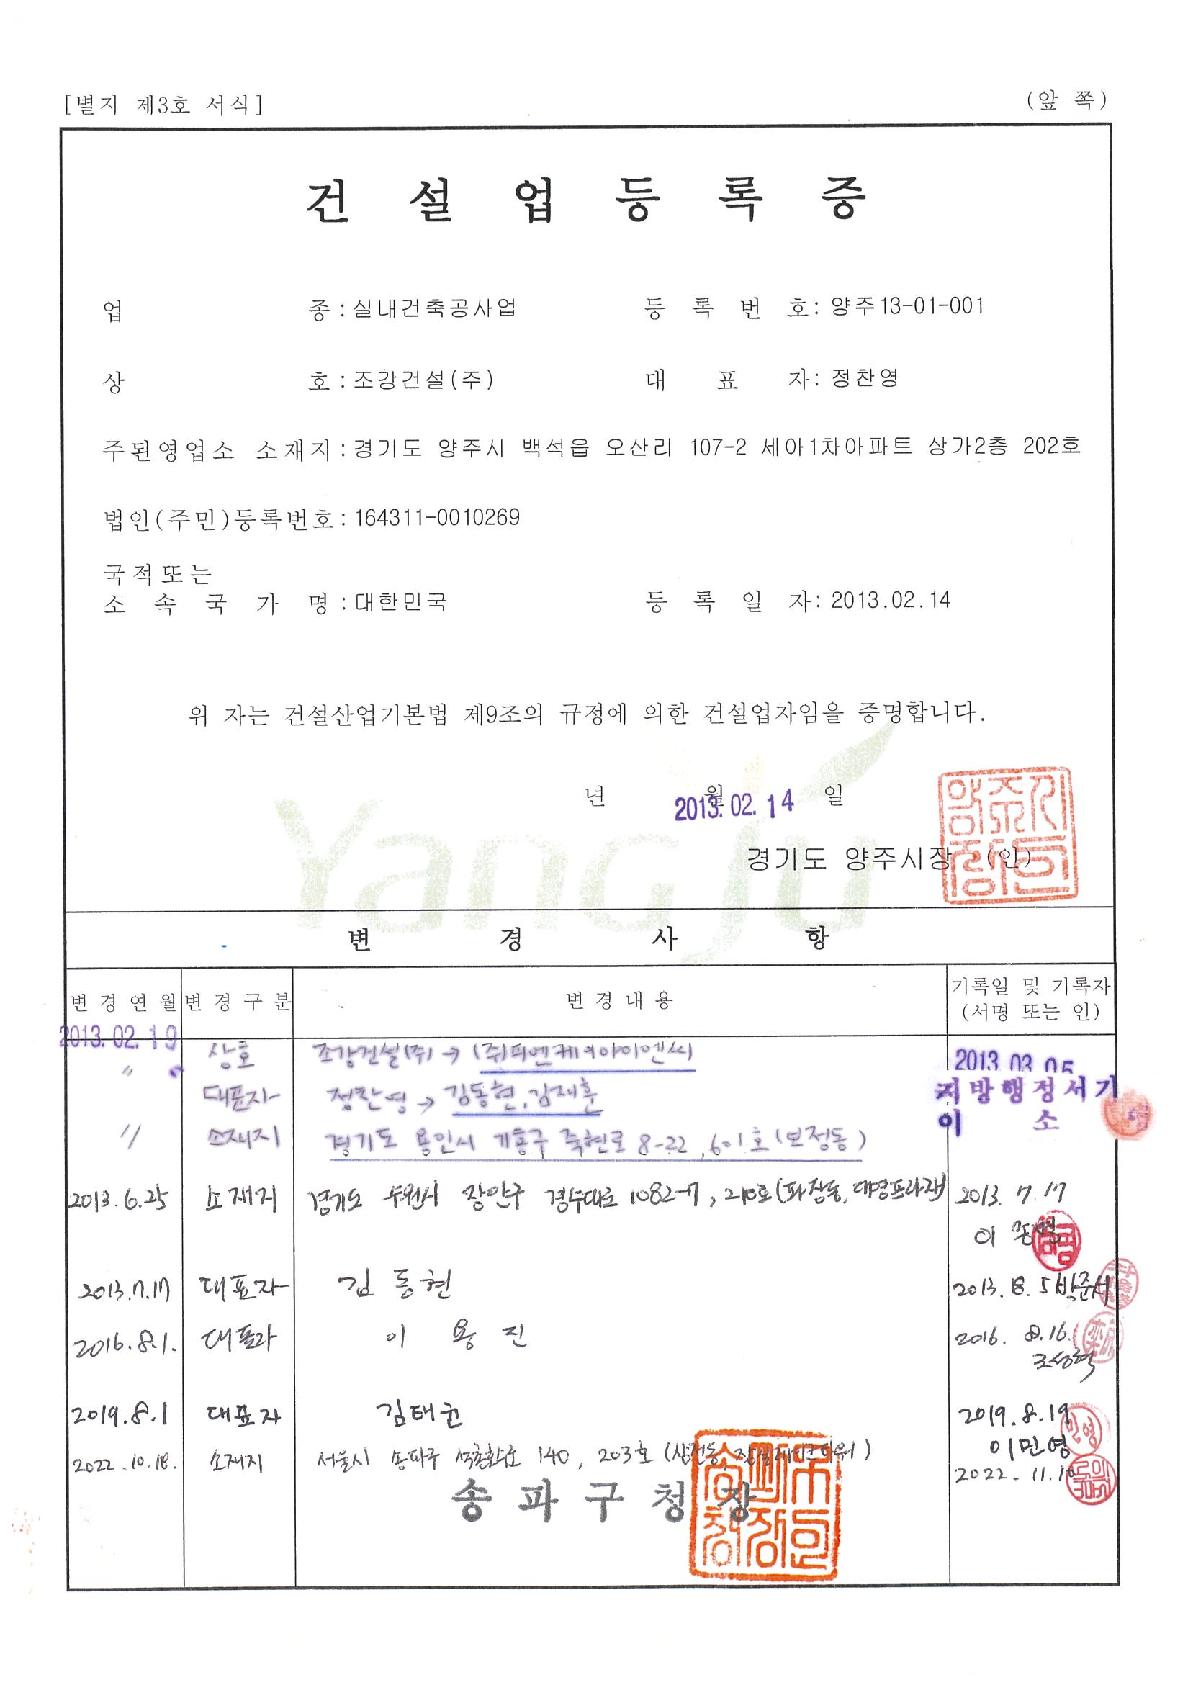 [별지 제3호 서식]
(앞 쪽)
건 설 업 등 록 증
업 종 : 실내건축공사업 등 록 번 호 : 양주13-01-001
상 호 : 조강건설(주) 대 표 자 : 정찬영
주된영업소 소재지 : 경기도 양주시 백석읍 오산리 107-2 세아1차아파트 상가2층 202호
법인(주민)등록번호 : 164311-0010269
국적또는
소 속 국 가 명 : 대한민국 등 록 일 자 : 2013.02.14
위 자는 건설산업기본법 제9조의 규정에 의한 건설업자임을 증명합니다.
년 월 일
2013.02.14
경기도 양주시장 (인)
YangJu
변 경 사 항
변경연월 변경구분 변경내용 기록일 및 기록자
(서명 또는 인)
2013.02.19 상호 조강건설(주) → (주)피엔케이아이엔씨 2013 03 05
〃 대표자 정찬영 → 김동현, 김재훈 지방행정서기
이 소
〃 소재지 경기도 용인시 기흥구 죽현로 8-22, 601호 (보정동)
2013.6.25 소재지 경기도 수원시 장안구 경수대로 1082-7, 210호 (파장동, 대명프라자) 2013. 7. 17
이
2013.7.17 대표자 김동현 2013. 8. 5 박준서
2016.8.1. 대표자 이용진 2016. 8.16.
2019.8.1 대표자 김태균 2019.8.19
이민영
2022.10.18. 소재지 서울시 송파구 석촌호수로 140, 203호 2022. 11.10
송파구청장